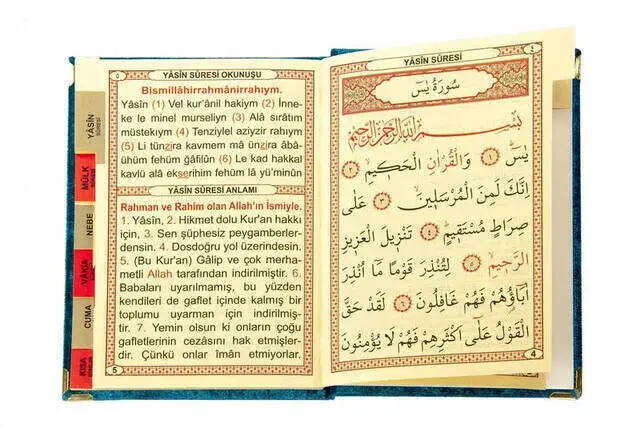 ٤
YÂSÎN SÛRESİ
سُورَةُ يٰسٓ
بِسْمِ اللّٰهِ الرَّحْمٰنِ الرَّحِيمِ
يٰسٓ ﴿١﴾ وَالْقُرْاٰنِ الْحَكِيمِ ﴿٢﴾
اِنَّكَ لَمِنَ الْمُرْسَلِينَ ﴿٣﴾ عَلٰى
صِرَاطٍ مُسْتَقِيمٍ ﴿٤﴾ تَنْزِيلَ الْعَزِيزِ
الرَّحِيمِ ﴿٥﴾ لِتُنْذِرَ قَوْمًا مَٓا اُنْذِرَ
اٰبَٓاؤُهُمْ فَهُمْ غَافِلُونَ ﴿٦﴾ لَقَدْ حَقَّ
الْقَوْلُ عَلٰٓى اَكْثَرِهِمْ فَهُمْ لَا يُؤْمِنُونَ
4
٥
YÂSÎN SÛRESİ OKUNUŞU
Bismillâhirrahmânirrahıym.
Yâsîn (1) Vel kur'ânil hakiym (2) İnne-
ke le minel murseliyn (3) Alâ sırâtım
müstekıym (4) Tenziylel azizir rahıym
(5) Li tünzira kavmem mâ ünzira âbâ-
ühüm fehüm ğâfilûn (6) Le kad hakkal
kavlü alâ ekserihim fehüm lâ yü'minûn
YÂSÎN SÛRESİ ANLAMI
Rahman ve Rahim olan Allah'ın İsmiyle.
1. Yâsîn, 2. Hikmet dolu Kur'an hakkı
için, 3. Sen şüphesiz peygamberler-
densin. 4. Dosdoğru yol üzerindesin.
5. (Bu Kur'an) Gâlip ve çok merha-
metli Allah tarafından indirilmiştir. 6.
Babaları uyarılmamış, bu yüzden
kendileri de gaflet içinde kalmış bir
toplumu uyarman için indirilmiş-
tir. 7. Yemin olsun ki onların çoğu
gafletlerinin cezasını hak etmişler-
dir. Çünkü onlar îmân etmiyorlar.
5
YÂSÎN
SÛRESİ
MÜLK
NEBE
VÂKIA
CUMA
KISA